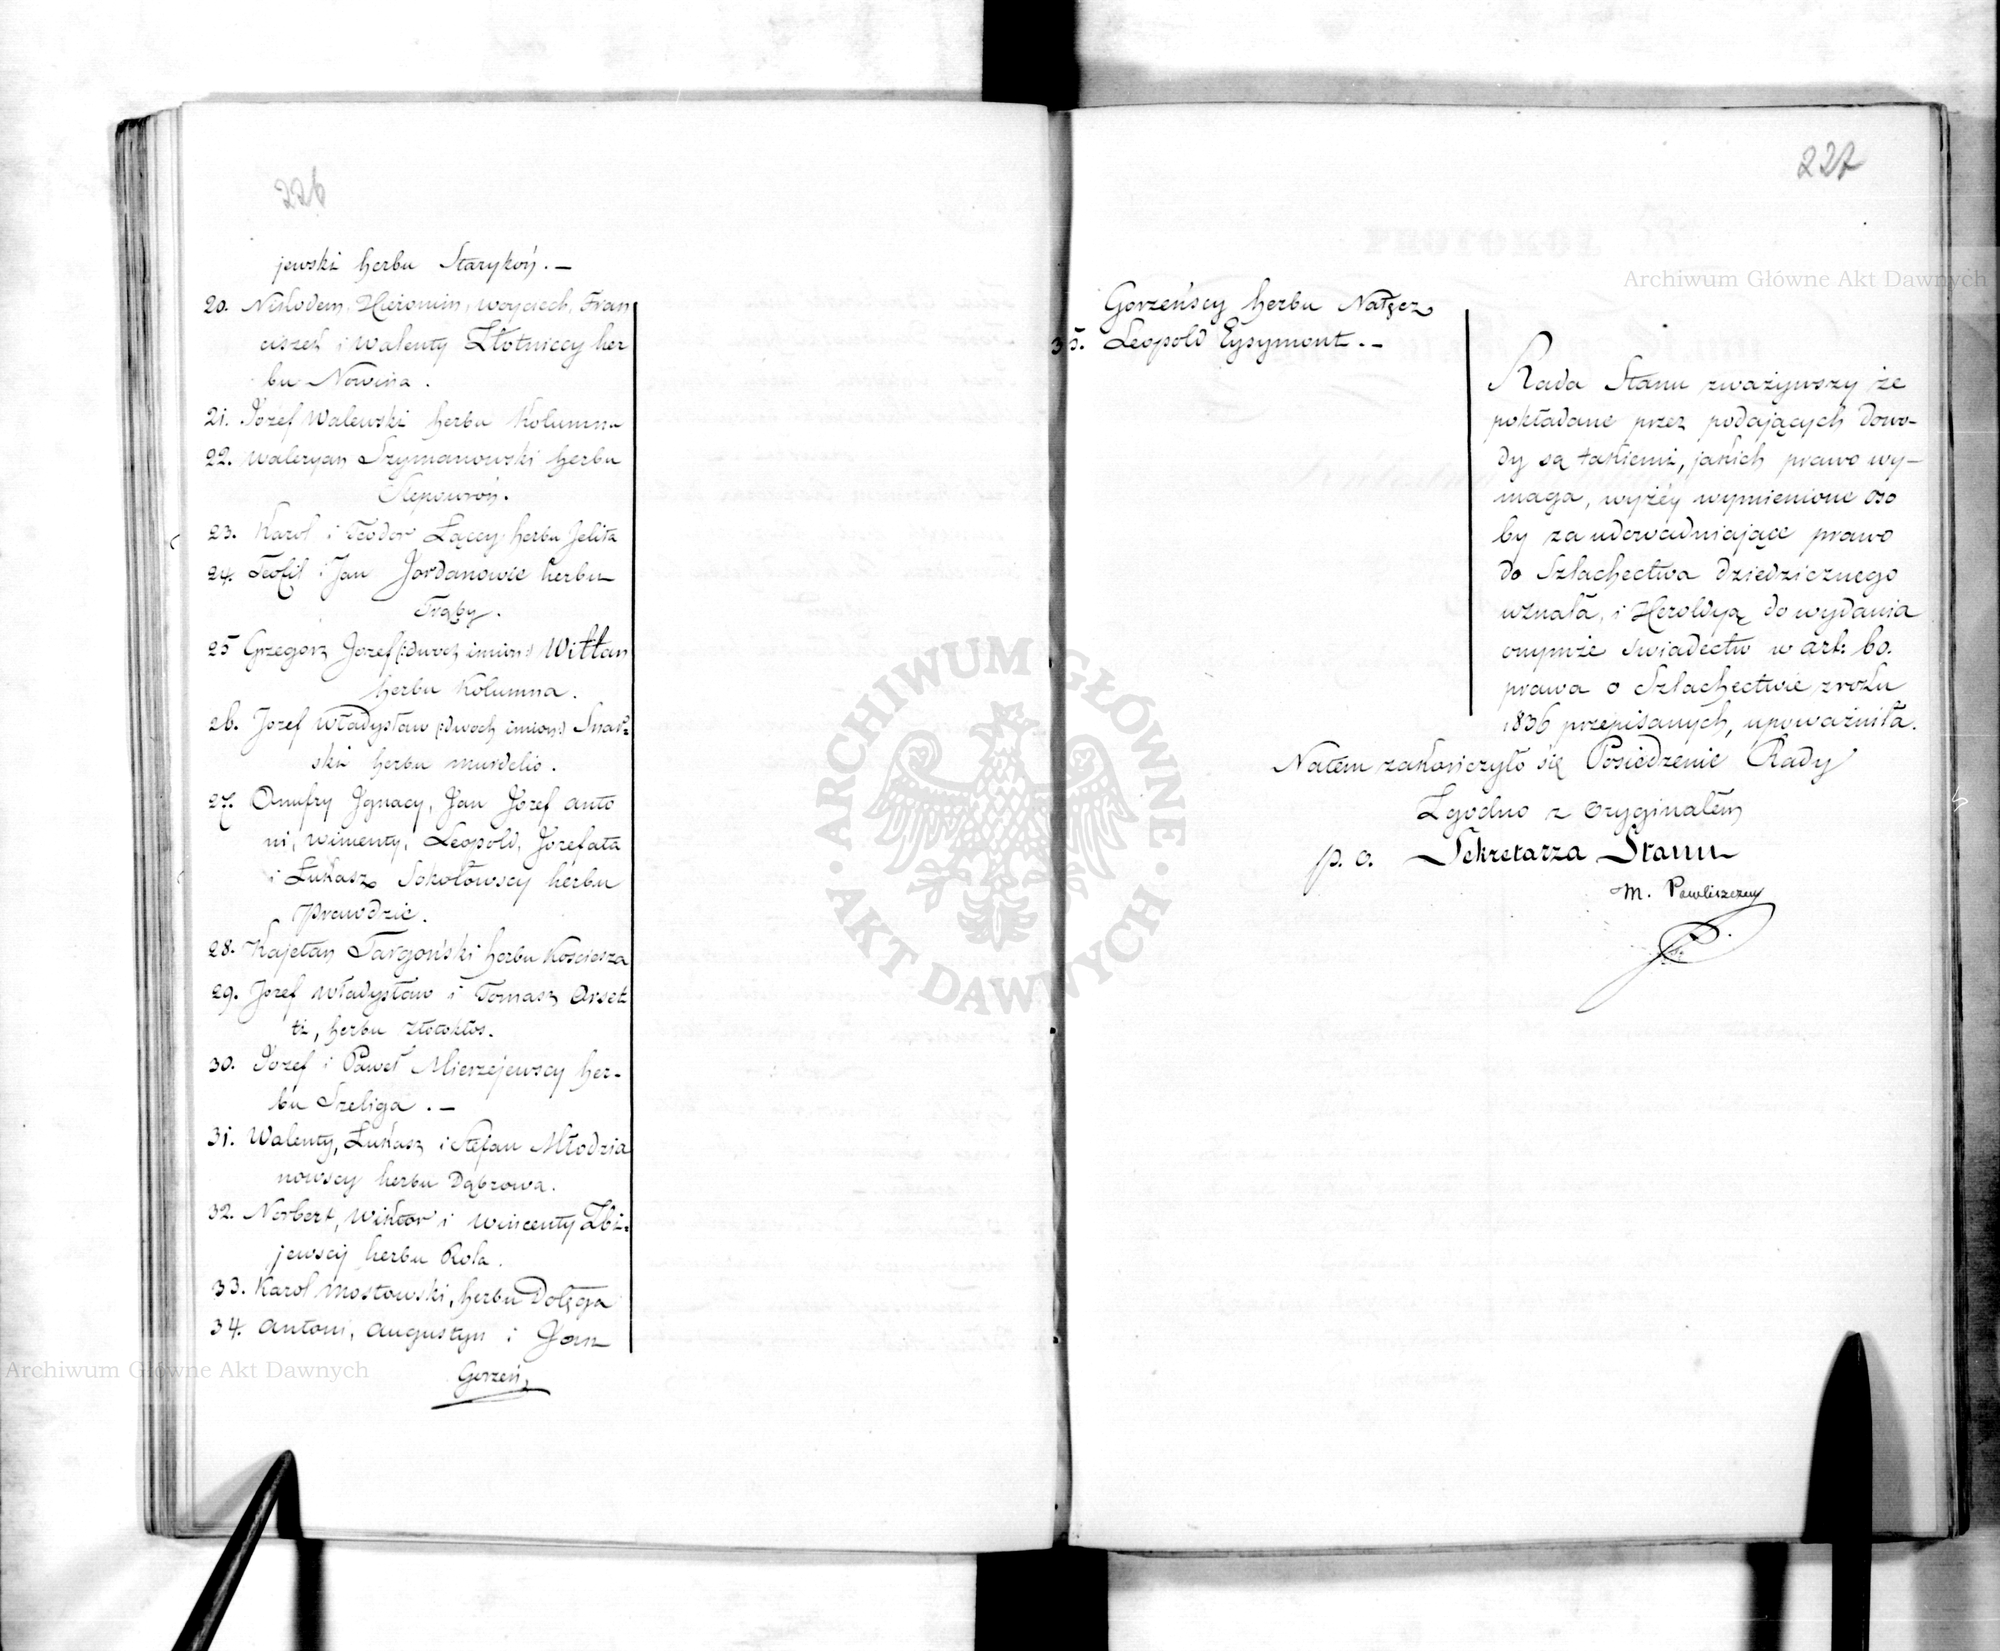 226
jewski herbu Starykoń. —
20. Nikodem, Hieronim, Woyciech, Fran
ciszek i Walenty Złotniccy her
bu Nowina.
21. Józef Walewski herbu Kolumna
22. Waleryan Szymanowski herbu
Slepowroń.
23. Karol i Teodor Łąccy herbu Jelita
24. Teofil i Jan Jordanowie herbu
Trąby.
25 Grzegorz Jozef (:dwoch imion:) Wittan
herbu Kolumna.
26. Jozef Władysław (:dwoch imion:) Snar-
ski herbu
27. Onufry Ignacy, Jan Józef Anto
ni, Wincenty, Leopold, Jozefata
i Łukasz Sokołowscy herbu
Prawdzic.
28. Kajetan Targoński herbu Kosciesza
29. Jozef Władysław i Tomasz Orset
ti, herbu Złotokłos.
30. Józef i Paweł Mierzejewscy her-
bu Szeliga. —
31. Walenty, Łukasz i Stefan Młodzia
nowscy herbu Dąbrowa.
32. Norbert, Wiktor i Wincenty Zbi-
jewscy herbu Rola.
33. Karol Mostowski, herbu Dołęga
34. Antoni, Augustyn i Jan
Gorzeń,
227
Gorzeńscy herbu Nałęcz
35. Leopold Eysymont. —
Rada Stanu zważywszy że
pokładane przez podających dowo-
dy są takiemi, jakich prawo wy-
maga, wyżéy wymienione oso
by za udowadniające prawo
do Szlachectwa dziedzicznego
uznała, i Heroldyą do wydania
onymże swiadectw w art: 60.
prawa o Szlachectwie z roku
1836 przepisanych, upoważniła.
Natem zakończyło się Posiedzenie Rady
Zgodno z Oryginałem
p. o. Sekretarza Stanu
M. Pawliszczew
Archiwum Główne Akt Dawnych
Archiwum Główne Akt Dawnych
ARCHIWUM GŁÓWNE AKT DAWNYCH